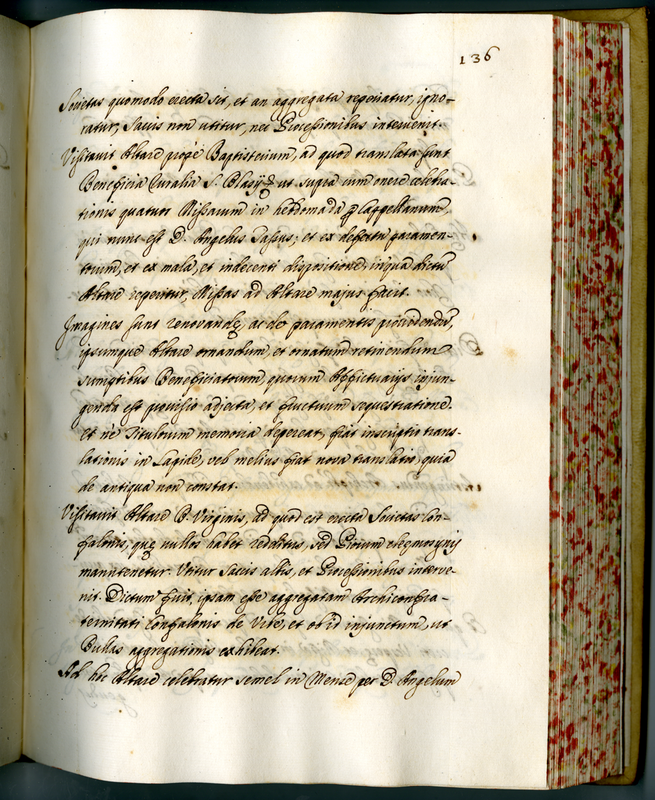 136
Societas quomodo erecta sit, et an aggregata reperiatur, igno-
ratur, Saccis non utitur, nec Processionibus intervenit.
Visitavit Altare prope Baptisterium, ad quod translata sunt
Beneficia Curalia S. Blasij ut supra cum onere celebra-
tionis quatuor Missarum in hebdomada ꝑ Cappellanum,
qui nunc est D. Angelus Tassus; et ex defectu paramen-
torum, et ex mala, et indecenti dispositione, in qua dictū
Altare reperitur, Missas ad Altare majus facit.
Imagines sunt renovandę, ac de paramentis providendū,
ipsumque Altare ornandum, et ornatum retinendum
sumptibus Beneficiatorum, quorum Affictuarijs injun-
genda est provisio adjecta et fructuum sequestratione.
Et ne Titulorum memoria depereat, fiat inscriptio trans-
lationis in Lapide, vel melius fiat nova translatio, quia
de antiqua non constat.
Visitavit Altare B. Virginis, ad quod est erecta Societas Con-
falonis, quę nullos habet redditus, sed Piorum elęmosynis
manutenetur. Utitur Saccis albis, et Processionibus interve-
nit. Dictum fuit, ipsam esse aggregatam Archiconfra-
ternitati Confalonis de Urbe, et ob id injunctum, ut
Bullas aggregationis exhibeat.
Ad hoc Altare celebratur semel in Mense per D. Angelum